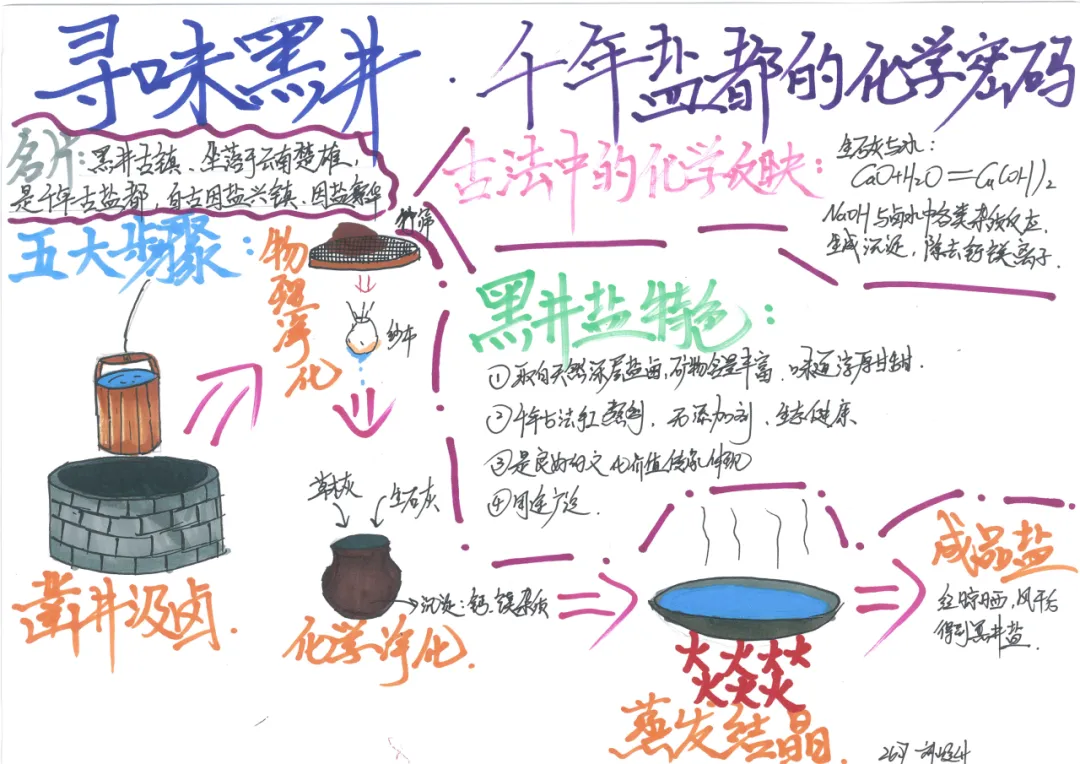 寻味黑井·千年盐都的化学密码
名片:黑井古镇、坐落于云南楚雄,
是千年古盐都,自古因盐兴镇、因盐繁华
五大步骤:
凿井汲卤.
物理净化
竹筛
纱布
草木灰
生石灰
沉淀:钙.镁杂质
化学净化.
古法中的化学反映:
生石灰与水:
CaO+H2O=Ca(OH)2
NaOH与卤水中各类杂质反应.
生成沉淀,除去钙镁离子.
黑井盐特色:
①取自天然深层盐卤,矿物含量丰富、味道淳厚甘甜.
②千年古法 无添加剂、生态健康
③是良好的文化价值传承体现
④用途广泛.
火火火火
火火火
蒸发结晶.
成品盐
经晾晒,风干后
得到黑井盐.